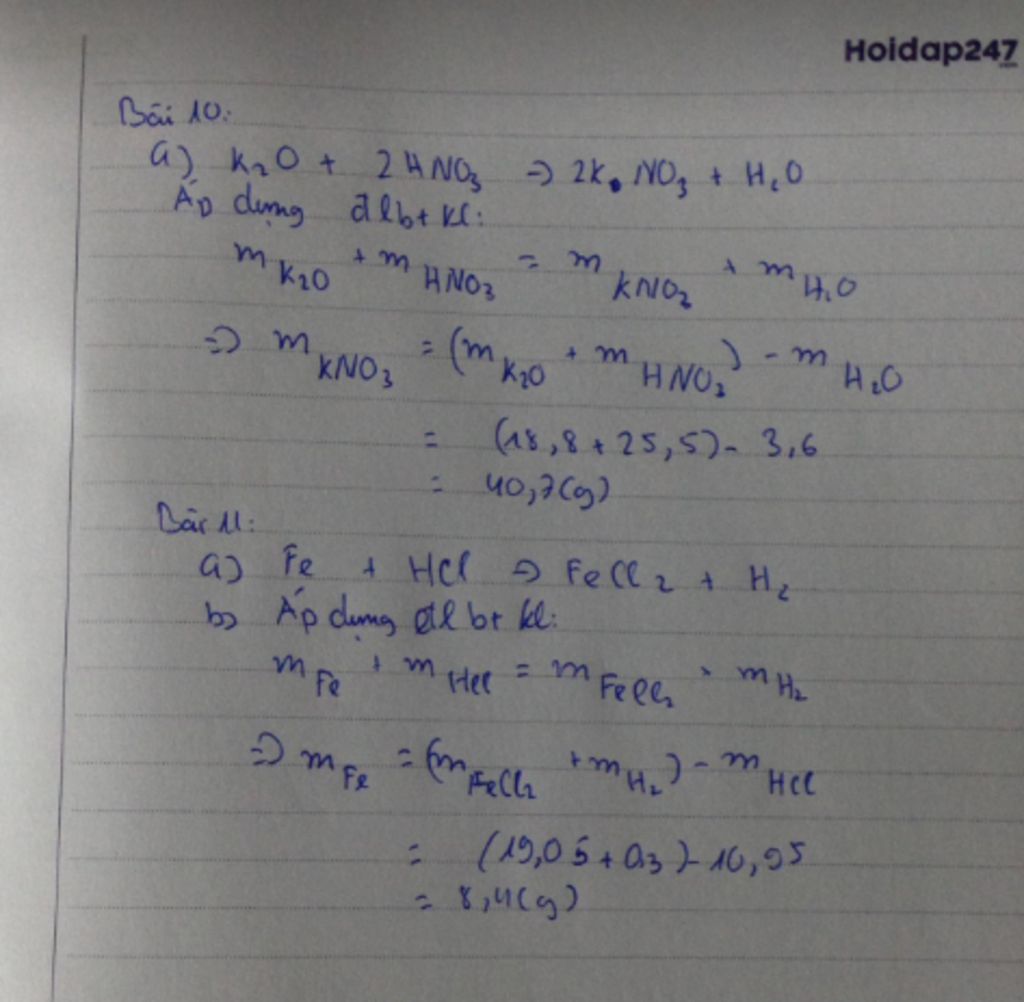 Hoidap247
.com
Bài 10:
a) K₂O + 2HNO₃ => 2K NO₃ + H₂O
Áp dụng đlbt kl:
m K₂O + m HNO₃ = m KNO₃ + m H₂O
=> m KNO₃ = (m K₂O + m HNO₃) - m H₂O
= (18,8 + 25,5) - 3,6
= 40,7(g)
Bài 11:
a) Fe + HCl => FeCl₂ + H₂
b) Áp dụng đlbt kl:
m Fe + m HCl = m FeCl₂ + m H₂
=> m Fe = (m FeCl₂ + m H₂) - m HCl
= (19,05 + 0,3) - 10,95
= 8,4(g)